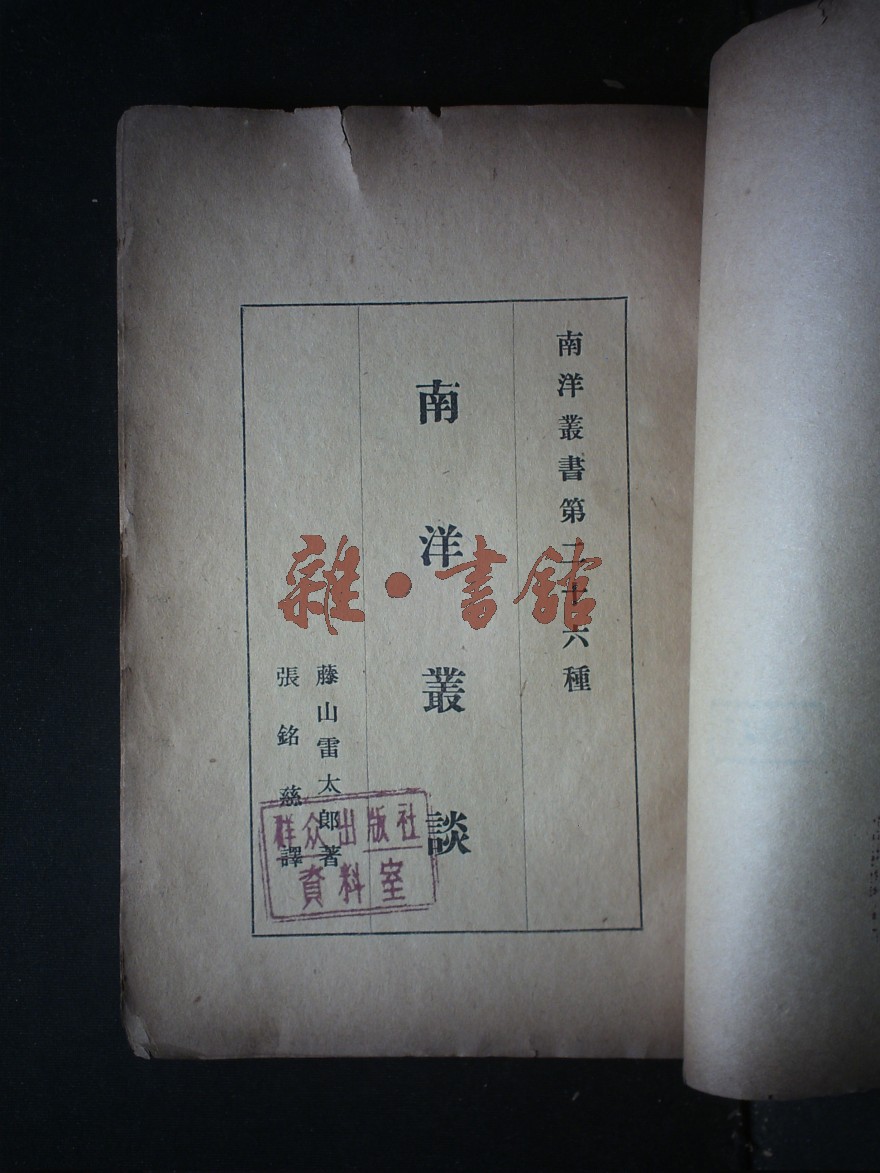 南洋叢書第二十六種
南洋叢談
藤山雷太郎著
張銘慈譯
群众出版社
資料室
雜·書館